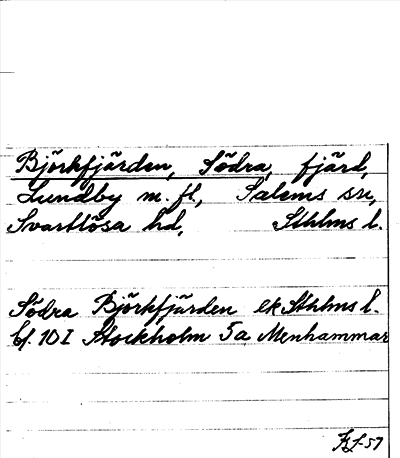 Björkfjärden, Södra, fjärd,
Lundby m. fl., Salems sn,
Svartlösa hd, Sthlms l.
Södra Björkfjärden ek Sthlms l.
bl. 10 I Stockholm 5a Menhammar